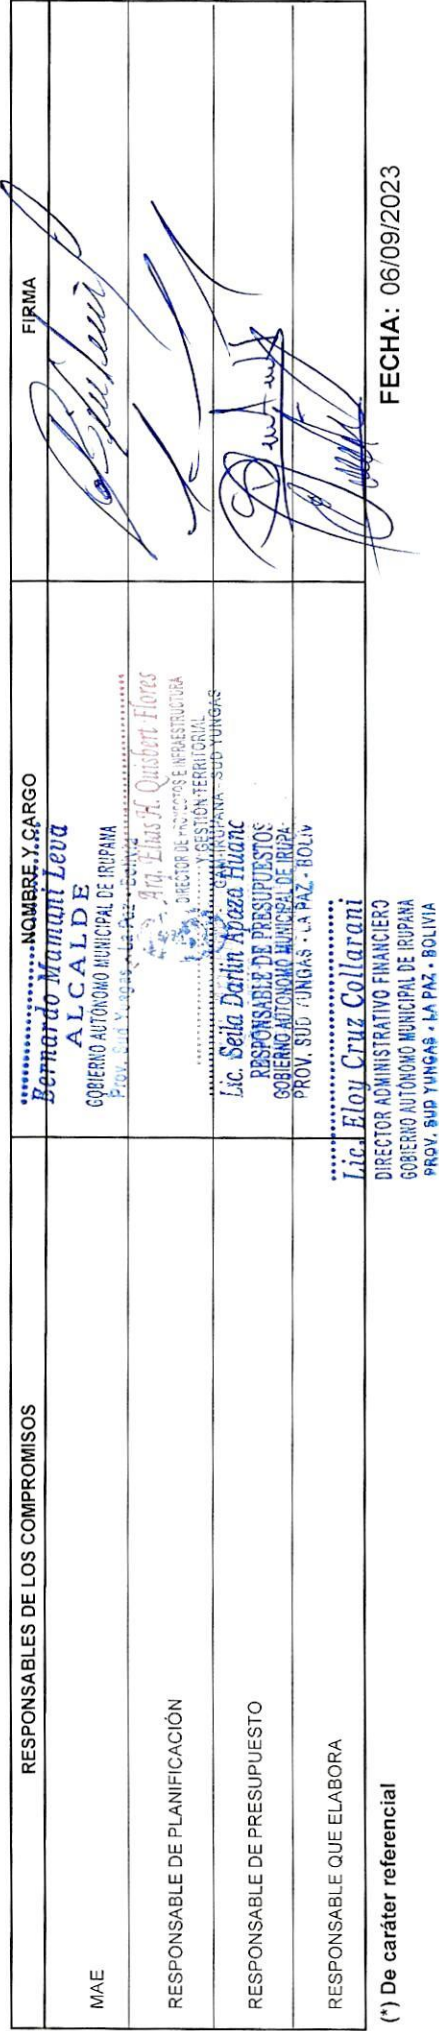 RESPONSABLES DE LOS COMPROMISOS
NOMBRE Y CARGO
FIRMA
MAE
Bernardo Mamani Leva
ALCALDE
GOBIERNO AUTÓNOMO MUNICIPAL DE IRUPANA
Prov. Sud Yungas - La Paz - Bolivia
RESPONSABLE DE PLANIFICACIÓN
Arq. Elias H. Quisbert Flores
DIRECTOR DE PROYECTOS E INFRAESTRUCTURA
Y GESTIÓN TERRITORIAL
GAM-IRUPANA - SUD YUNGAS
RESPONSABLE DE PRESUPUESTO
Lic. Seila Darlin Apaza Huanc
RESPONSABLE DE PRESUPUESTOS
GOBIERNO AUTÓNOMO MUNICIPAL DE IRUPA
PROV. SUD YUNGAS - LA PAZ - BOLIV
RESPONSABLE QUE ELABORA
Lic. Eloy Cruz Collarani
DIRECTOR ADMINISTRATIVO FINANCIERO
GOBIERNO AUTÓNOMO MUNICIPAL DE IRUPANA
PROV. SUD YUNGAS - LA PAZ - BOLIVIA
(*) De caráter referencial
FECHA: 06/09/2023